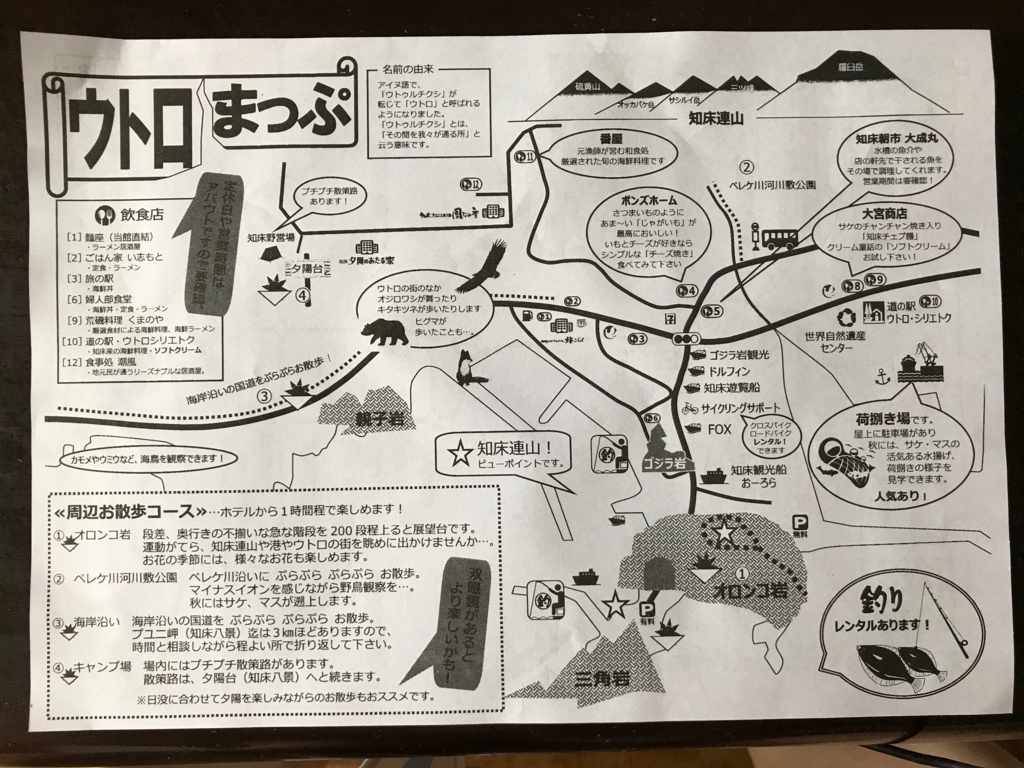 ウトロ まっぷ
名前の由来
アイヌ語で、
「ウトゥルチクシ」が
転じて「ウトロ」と呼ばれる
ようになりました。
「ウトゥルチクシ」とは、
「その間を我々が通る所」と
云う意味です。
硫黄山
オッカバケ岳
サシルイ岳
三ツ峰
羅臼岳
知床連山
定休日や営業時間は
アバウトですので要確認。
飲食店
[1] 麺座（当館直結）
・ラーメン居酒屋
[2] ごはん家 いちもと
・定食・ラーメン
[3] 旅の駅
・海鮮丼
[6] 婦人部食堂
・海鮮丼・定食・ラーメン
[9] 荒磯料理 くまのや
・厳選食材による海鮮料理、海鮮ラーメン
[10] 道の駅・ウトロシリエトク
・知床産の海鮮料理・ソフトクリーム
[12] 食事処 潮風
・地元民が通うリーズナブルな居酒屋。
プチプチ散策路
あります！
知床野営場
夕陽台
④
夕陽のあたる家
12
11
番屋
元漁師が営む和食処
厳選された旬の海鮮料理です
②
ペレケ川河川敷公園
知床朝市 大成丸
水槽の魚介や
店の軒先で干される魚を
その場で調理してくれます。
営業期間は要確認！
ボンズホーム
さつまいものように
あま～い「じゃがいも」が
最高においしい！
いもとチーズが好きなら
シンプルな「チーズ焼き」
食べてみて下さい
大宮商店
サケのチャンチャン焼き入り
「知床チェプ饅」
クリーム童話の「ソフトクリーム」
お試し下さい！
ウトロの街のなか
オジロワシが舞ったり
キタキツネが歩いたりします
ヒグマが
歩いたことも…
2
1
3
4
5
7
8
9
道の駅
ウトロ・シリエトク
10
世界自然遺産
センター
ゴジラ岩観光
ドルフィン
知床遊覧船
サイクリングサポート
FOX
クロスバイク
ロードバイク
レンタル！
できます
海岸沿いの国道をぶらぶらお散歩！
③
親子岩
カモメやウミウなど、海鳥を観察できます！
知床連山！
ビューポイントです。
釣
6
ゴジラ岩
知床観光船
おーろら
荷捌き場です。
屋上に駐車場があり
秋には、サケ・マスの
活気ある水揚げ、
荷捌きの様子を
見学できます。
人気あり！
≪周辺お散歩コース≫…ホテルから1時間程で楽しめます！
① オロンコ岩 段差、奥行きの不揃いな急な階段を200段程上ると展望台です。
運動がてら、知床連山や港やウトロの街を眺めに出かけませんか…。
お花の季節には、様々なお花も楽しめます。
② ペレケ川河川敷公園 ペレケ川沿いに ぶらぶら ぶらぶら お散歩。
マイナスイオンを感じながら野鳥観察を…。
秋にはサケ、マスが遡上します。
③ 海岸沿い 海岸沿いの国道を ぶらぶら ぶらぶら お散歩。
プユニ岬（知床八景）迄は3kmほどありますので、
時間と相談しながら程よい所で折り返して下さい。
④ キャンプ場 場内にはプチプチ散策路があります。
散策路は、夕陽台（知床八景）へと続きます。
※日没に合わせて夕陽を楽しみながらのお散歩もおススメです。
双眼鏡があると
より楽しいかも！
釣
P
有料
P
無料
①
オロンコ岩
三角岩
釣り
レンタルあります！